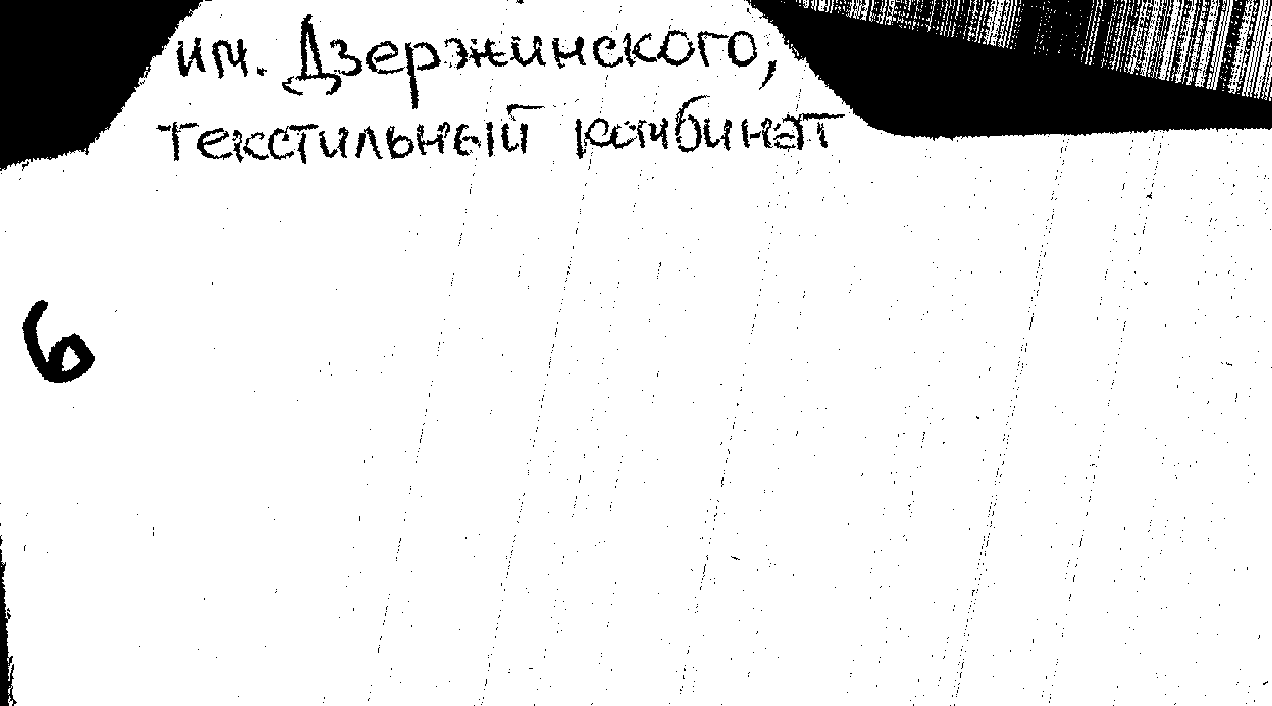 им. Дзержинского,
текстильный комбинат
6